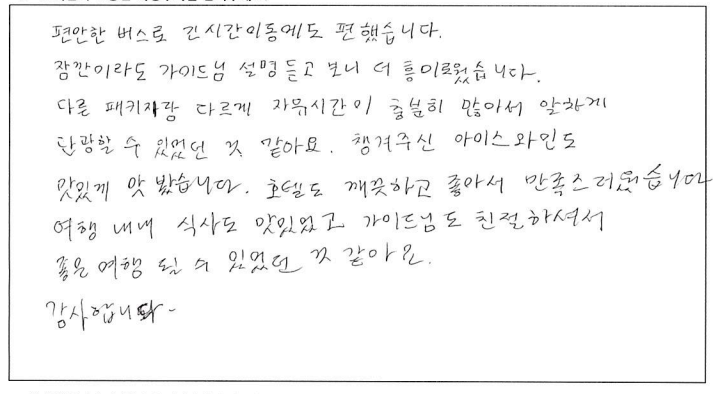 편안한 버스로 긴시간이동에도 편했습니다.
잠깐이라도 가이드님 설명듣고 보니 더 흥미로웠습니다.
다른 패키지랑 다르게 자유시간이 충분히 많아서 알차게
관광할 수 있었던 것 같아요. 챙겨주신 아이스와인도
맛있게 맛 봤습니다. 호텔도 깨끗하고 좋아서 만족스러웠습니다
여행 내내 식사도 맛있었고 가이드님도 친절하셔서
좋은 여행 될 수 있었던 것 같아요.
감사합니다-